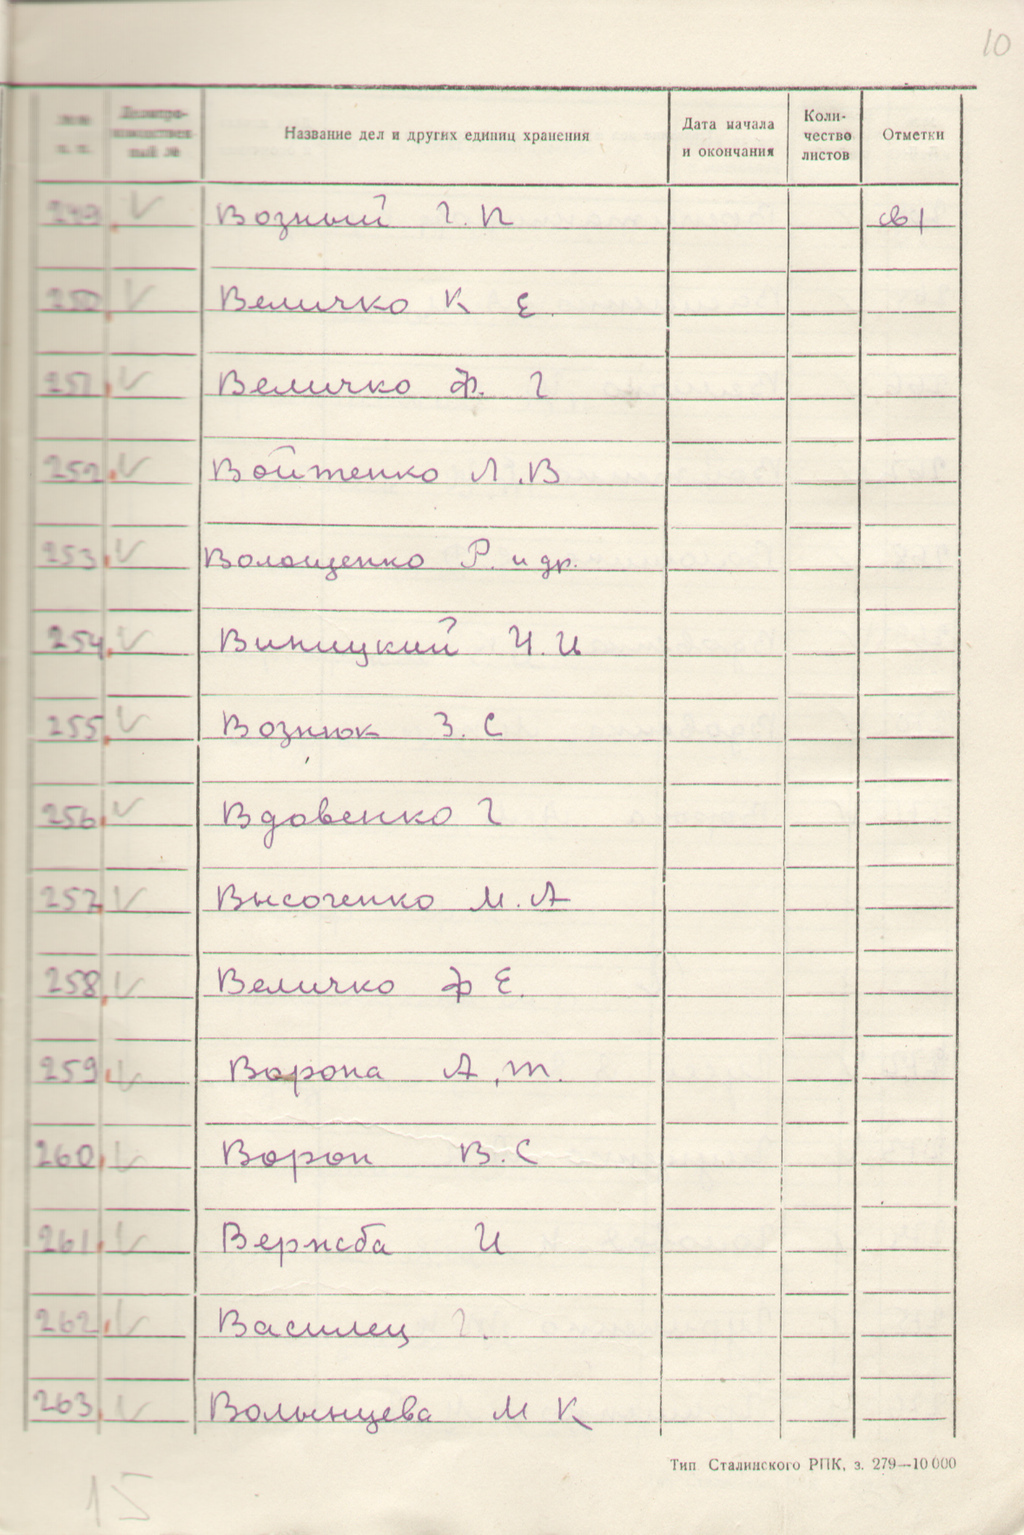 10
№№ п. п. Делопро- изводствен- ный № Название дел и других единиц хранения Дата начала и окончания Коли- чество листов Отметки
249 V Возный Г. П
250 V Величко К Е.
251 V Величко Ф. Г
252 V Войтенко Л. В
253 V Волощенко Р. и др.
254 V Виницкий Ч. И
255 V Вознюк З. С
256 V Вдовенко Г
257 V Высоченко М. А
258 V Величко Ф Е.
259 V Ворона А. Т.
260 V Ворон В. С
261 V Вержба И
262 V Василец Г.
263 V Волынцева М К
Тип Сталинского РПК, з. 279—10 000
15